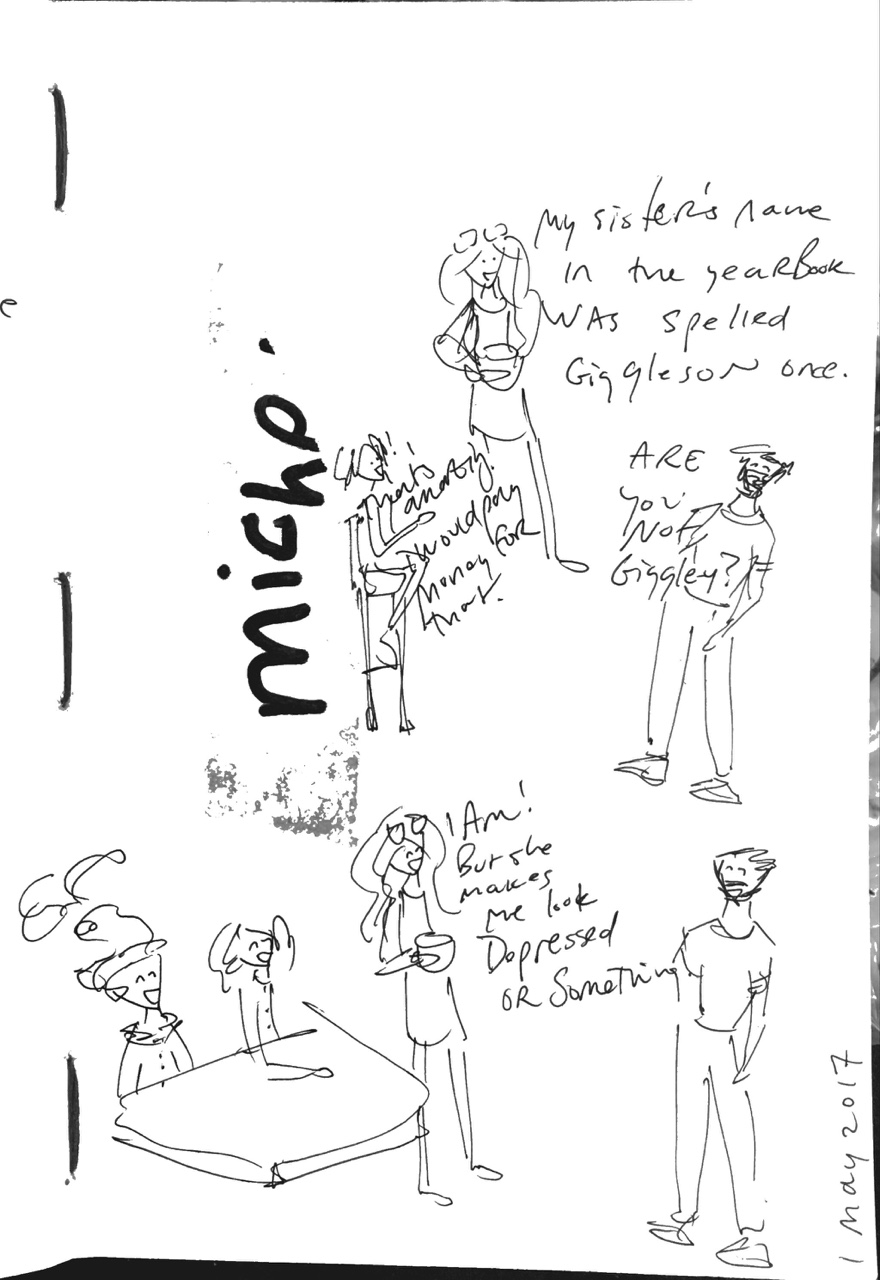 My sister's name
in the yearBook
WAS spelled
GigglesoN once.
That's
amazing!
I would pay
money for
that.
ARE
you
Not
Giggley?
micho.
I Am!
But she
makes
me look
Depressed
OR Something
1 May 2017